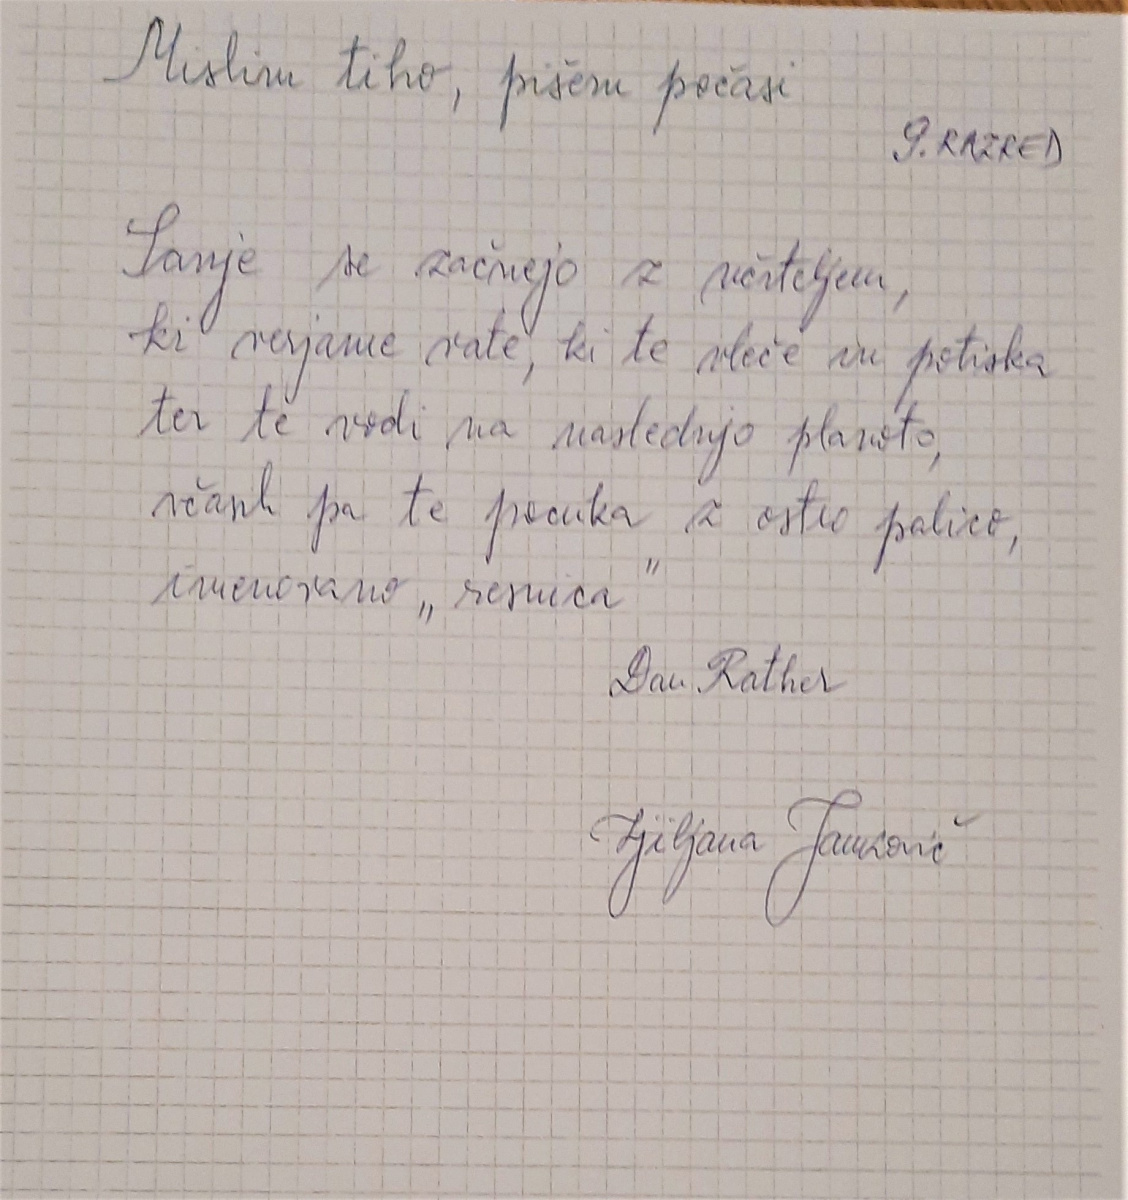 Mislim tiho, pišem počasi
9. RAZRED
Sanje se začnejo z učiteljem,
ki verjame vate, ki te vleče in potiska
ter te vodi na naslednjo planoto,
včasih pa te pocuka z ostro palico,
imenovano „resnica”
Dan Rather
Ljiljana Janković